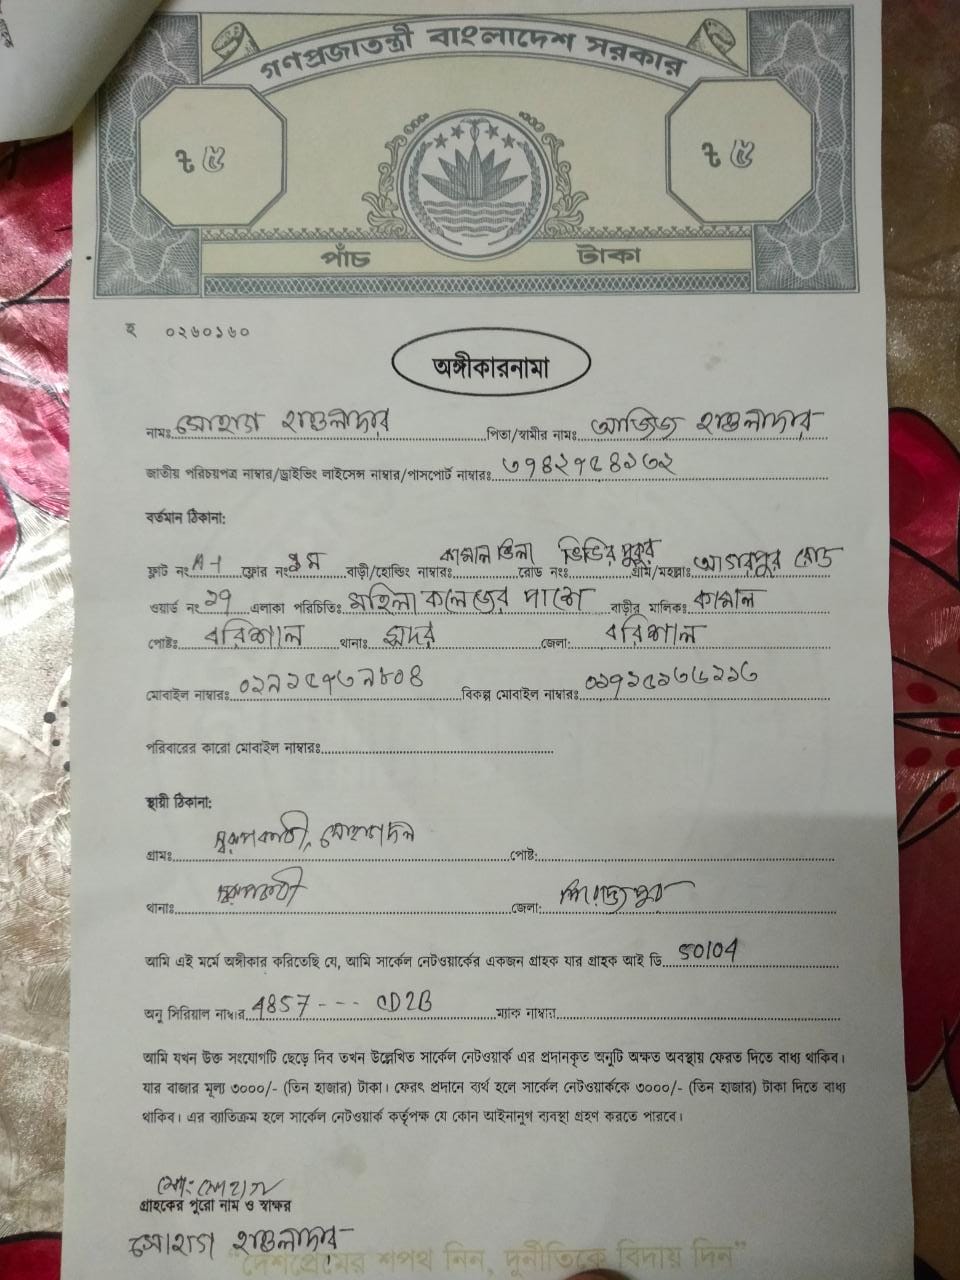 গণপ্রজাতন্ত্রী বাংলাদেশ সরকার
ট ৫ ট ৫
পাঁচ টাকা
হ ০২৬০১৬০
অঙ্গীকারনামা
নামঃ সোহাগ হাওলাদার পিতা/স্বামীর নামঃ আজিজ হাওলাদার
জাতীয় পরিচয়পত্র নাম্বার/ড্রাইভিং লাইসেন্স নাম্বার/পাসপোর্ট নাম্বারঃ
বর্তমান ঠিকানা:
ফ্লাট নং A-1 ফ্লোর নং বাড়ী/হোল্ডিং নাম্বারঃ কামাল ভিলা রোড নংঃ গ্রাম/মহল্লাঃ আগরপুর রোড
ওয়ার্ড নং ১৭ এলাকা পরিচিতিঃ মহিলা কলেজের পাশে বাড়ীর মালিকঃ কামাল
পোষ্টঃ বরিশাল থানাঃ সদর জেলা: বরিশাল
মোবাইল নাম্বারঃ বিকল্প মোবাইল নাম্বারঃ
পরিবারের কারো মোবাইল নাম্বারঃ
স্থায়ী ঠিকানা:
গ্রামঃ পোষ্ট:
থানাঃ জেলা: পিরোজপুর
আমি এই মর্মে অঙ্গীকার করিতেছি যে, আমি সার্কেল নেটওয়ার্কের একজন গ্রাহক যার গ্রাহক আই ডি 50104
অনু সিরিয়াল নাম্বার 4857 --- CD2B ম্যাক নাম্বার
আমি যখন উক্ত সংযোগটি ছেড়ে দিব তখন উল্লেখিত সার্কেল নেটওয়ার্ক এর প্রদানকৃত অনুটি অক্ষত অবস্থায় ফেরত দিতে বাধ্য থাকিব।
যার বাজার মূল্য ৩০০০/- (তিন হাজার) টাকা। ফেরৎ প্রদানে ব্যর্থ হলে সার্কেল নেটওয়ার্ককে ৩০০০/- (তিন হাজার) টাকা দিতে বাধ্য
থাকিব। এর ব্যতিক্রম হলে সার্কেল নেটওয়ার্ক কর্তৃপক্ষ যে কোন আইনানুগ ব্যবস্থা গ্রহণ করতে পারবে।
গ্রাহকের পুরো নাম ও স্বাক্ষর
সোহাগ হাওলাদার
"দেশপ্রেমের শপথ নিন, দুর্নীতিকে বিদায় দিন"